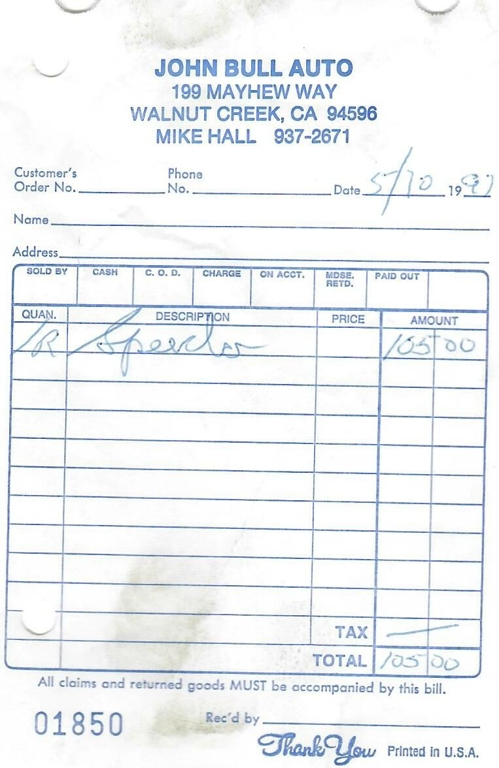 JOHN BULL AUTO
199 MAYHEW WAY
WALNUT CREEK, CA 94596
MIKE HALL 937-2671
Customer's Order No. Phone No. Date 5/10 1997
Name
Address
SOLD BY CASH C. O. D. CHARGE ON ACCT. MDSE. RETD. PAID OUT
QUAN. DESCRIPTION PRICE AMOUNT
1R Speedo 105 00
TAX —
TOTAL 105 00
All claims and returned goods MUST be accompanied by this bill.
01850 Rec'd by
Thank You Printed in U.S.A.